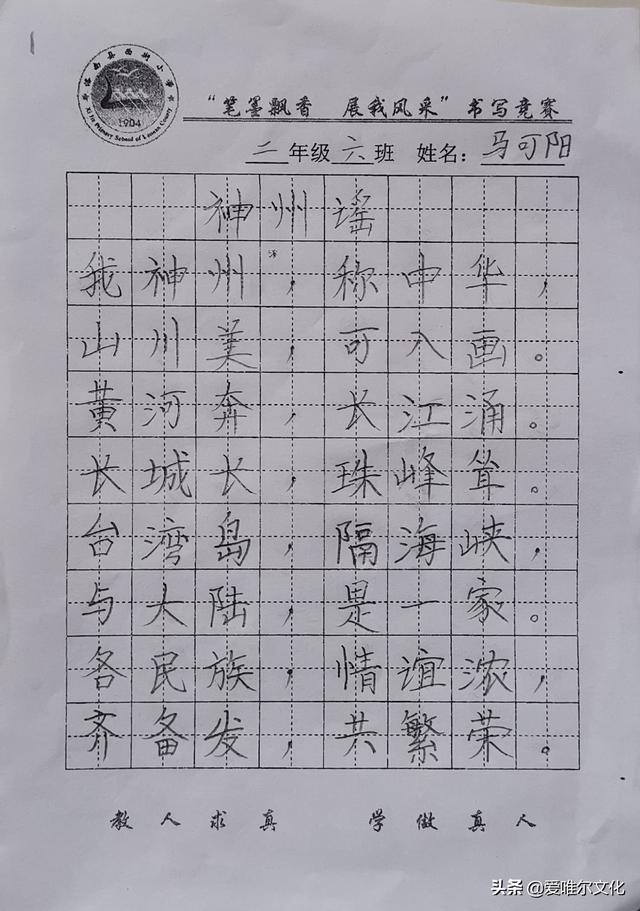 1904
“笔墨飘香 展我风采”书写竞赛
二年级六班 姓名：马可阳
神州谣
我神州，称中华，
山川美，可入画。
黄河奔，长江涌。
长城长，珠峰耸。
台湾岛，隔海峡，
与大陆，是一家。
各民族，情谊浓，
齐备发，共繁荣。
教人求真 学做真人
头条 @爱唯尔文化